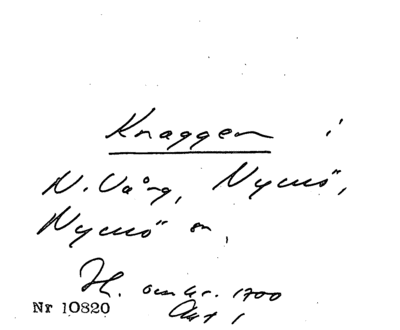 Knaggen i
N. Vång, Nymö,
Nymö sn,
H. omkr. 1700
Akt 1
Nr 10820